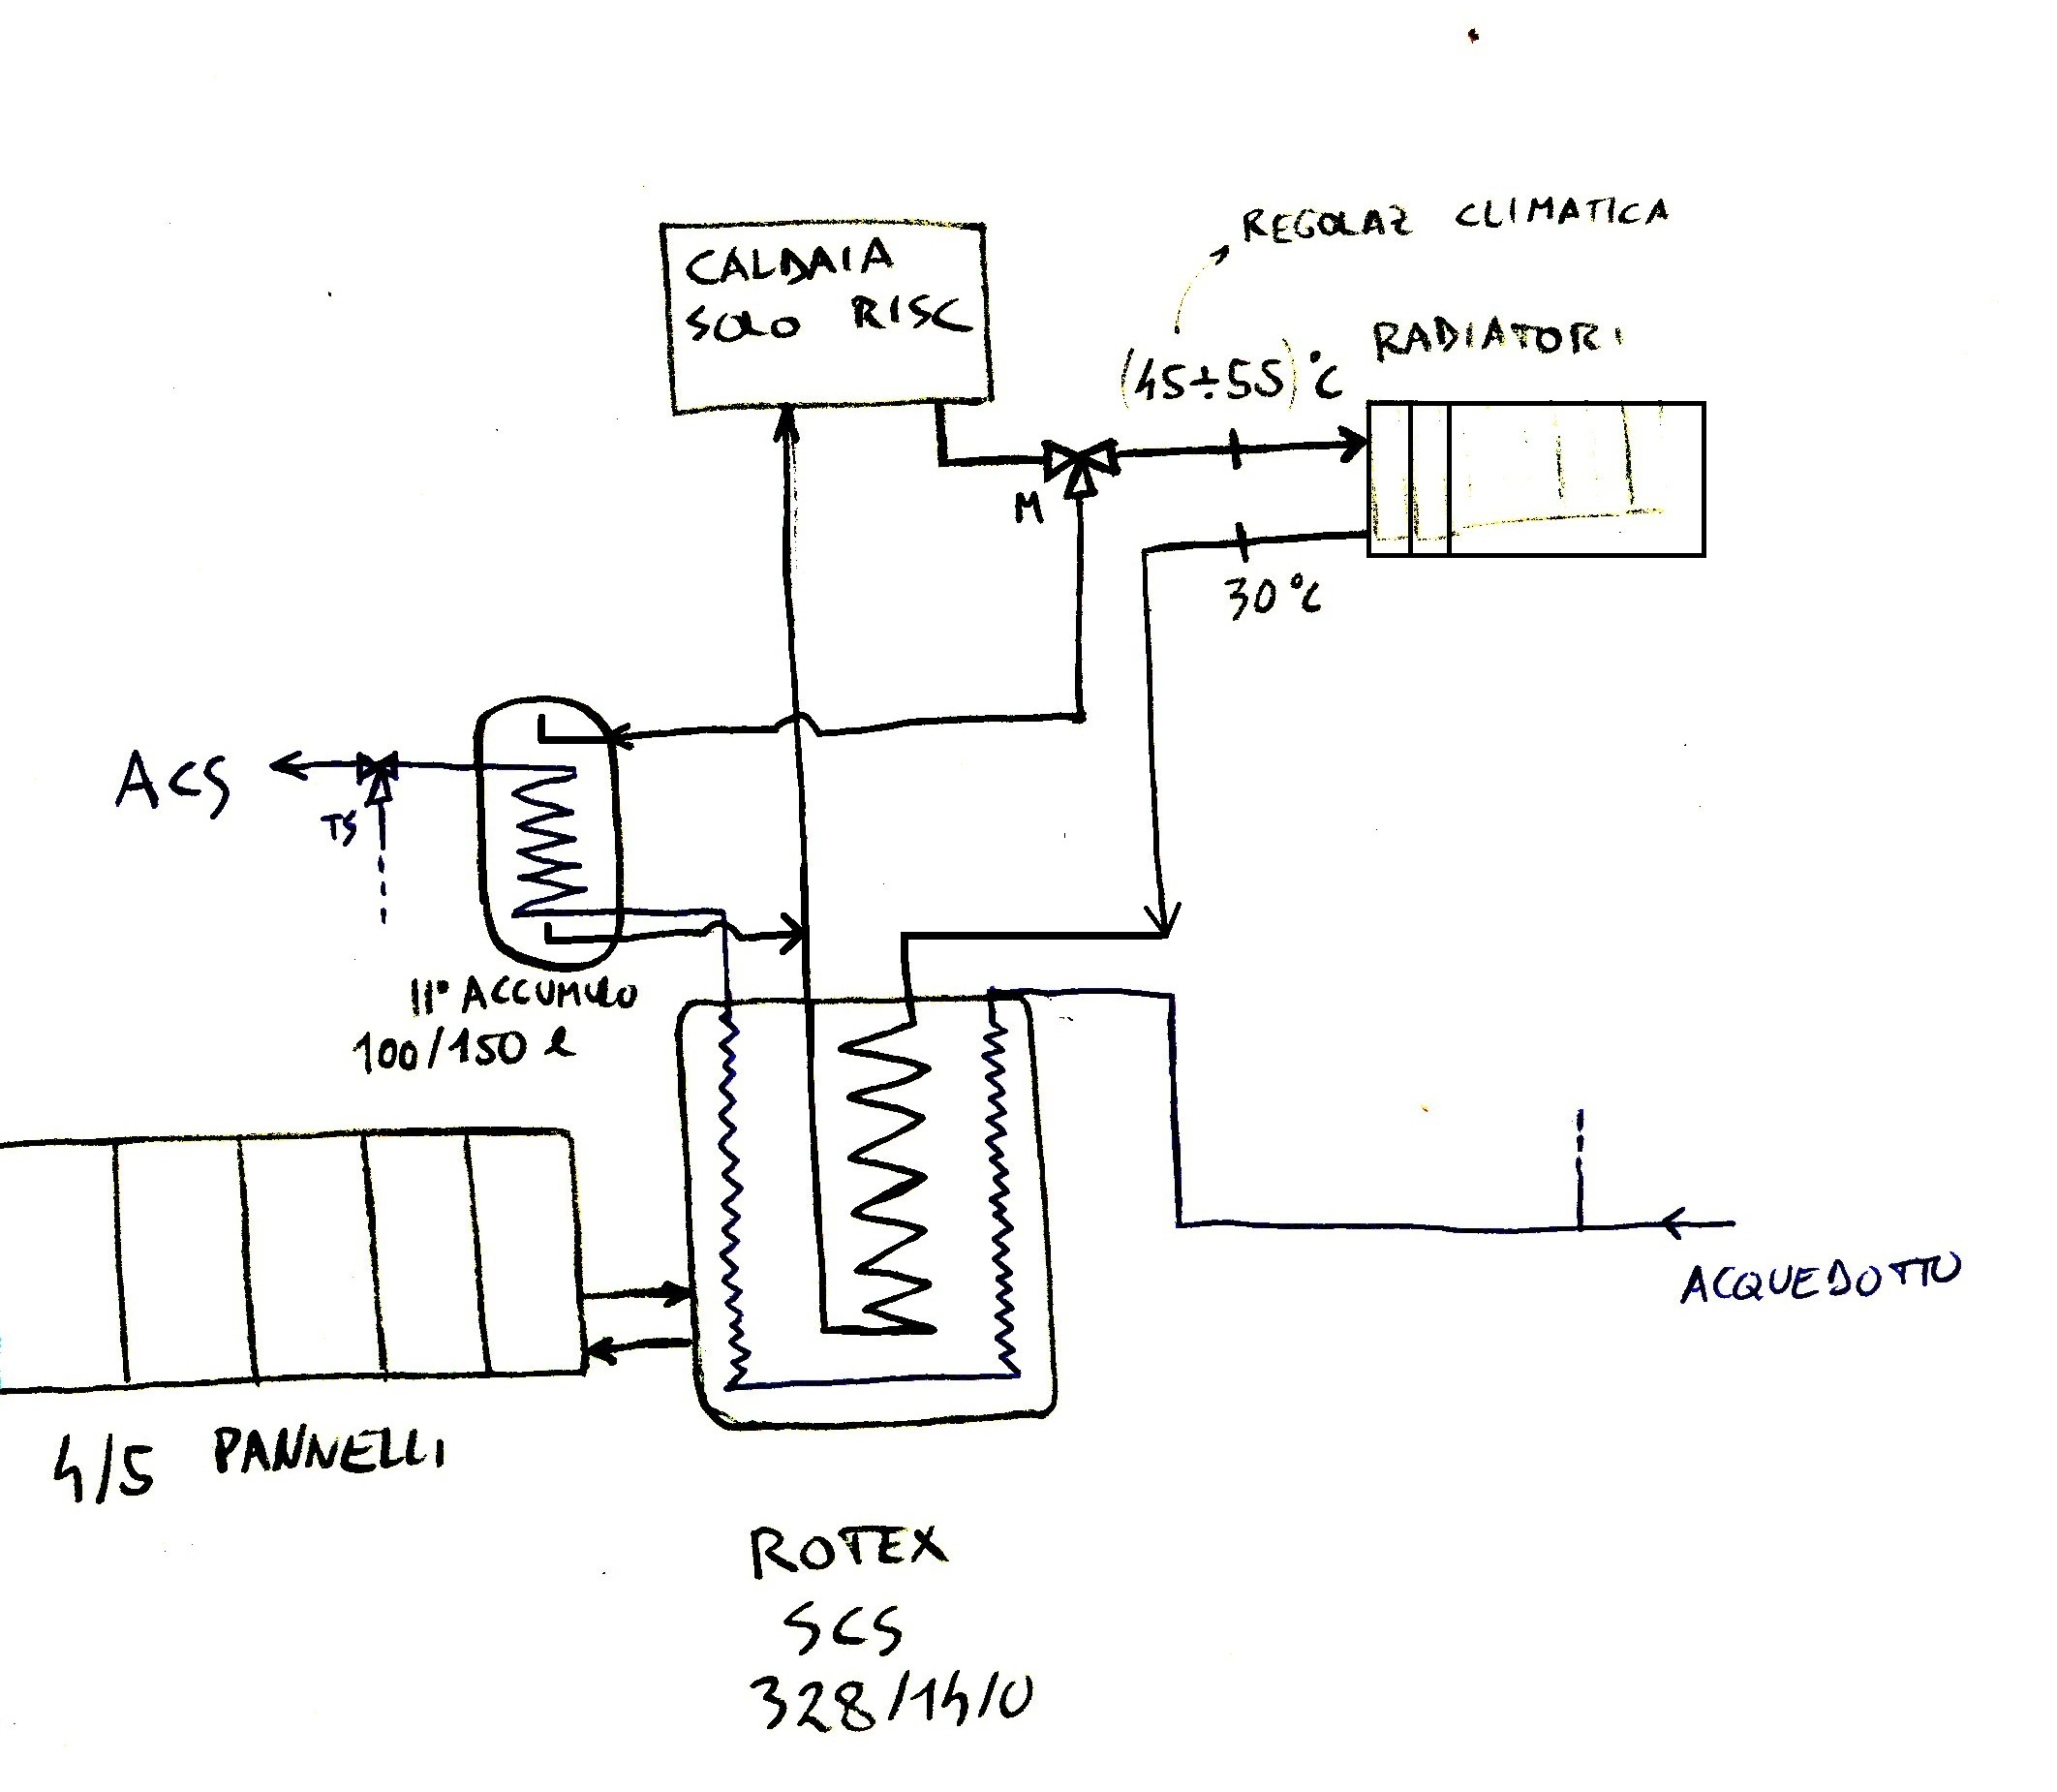 REGOLAZ CLIMATICA
CALDAIA
SOLO RISC
RADIATORI
(45÷55)°C
M
30°C
ACS
TS
II° ACCUMULO
100/150 l
ACQUEDOTTO
4/5 PANNELLI
ROTEX
SCS
328/14/0